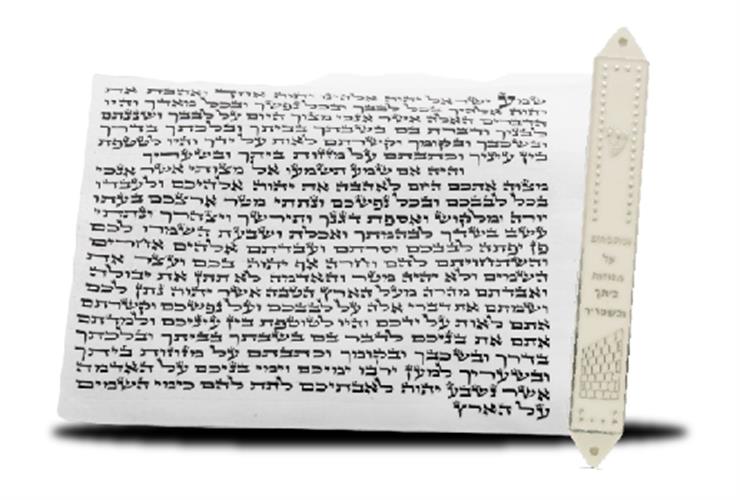 שמע ישראל יהוה אלהינו יהוה אחד ואהבת את
יהוה אלהיך בכל לבבך ובכל נפשך ובכל מאדך והיו
הדברים האלה אשר אנכי מצוך היום על לבבך ושננתם
לבניך ודברת בם בשבתך בביתך ובלכתך בדרך
ובשכבך ובקומך וקשרתם לאות על ידך והיו לטטפת
בין עיניך וכתבתם על מזוזות ביתך ובשעריך
והיה אם שמע תשמעו אל מצותי אשר אנכי
מצוה אתכם היום לאהבה את יהוה אלהיכם ולעבדו
בכל לבבכם ובכל נפשכם ונתתי מטר ארצכם בעתו
יורה ומלקוש ואספת דגנך ותירשך ויצהרך ונתתי
עשב בשדך לבהמתך ואכלת ושבעת השמרו לכם
פן יפתה לבבכם וסרתם ועבדתם אלהים אחרים
והשתחויתם להם וחרה אף יהוה בכם ועצר את
השמים ולא יהיה מטר והאדמה לא תתן את יבולה
ואבדתם מהרה מעל הארץ הטבה אשר יהוה נתן לכם
ושמתם את דברי אלה על לבבכם ועל נפשכם וקשרתם
אתם לאות על ידכם והיו לטוטפת בין עיניכם ולמדתם
אתם את בניכם לדבר בם בשבתך בביתך ובלכתך
בדרך ובשכבך ובקומך וכתבתם על מזוזות ביתך
ובשעריך למען ירבו ימיכם וימי בניכם על האדמה
אשר נשבע יהוה לאבתיכם לתת להם כימי השמים
על הארץ
ש
וכתבתם
על
מזוזות
ביתך
ובשעריך